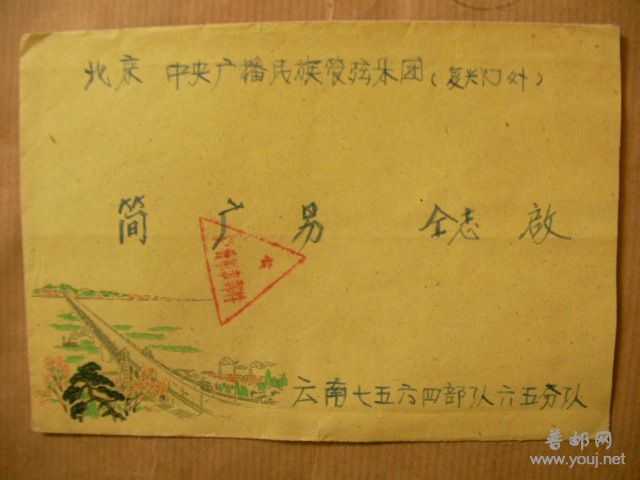 北京 中央广播民族管弦乐团(复兴门外)
简 广 易 仝志 啟
云南七五六四部队六五分队
普邮网
www.youj.net